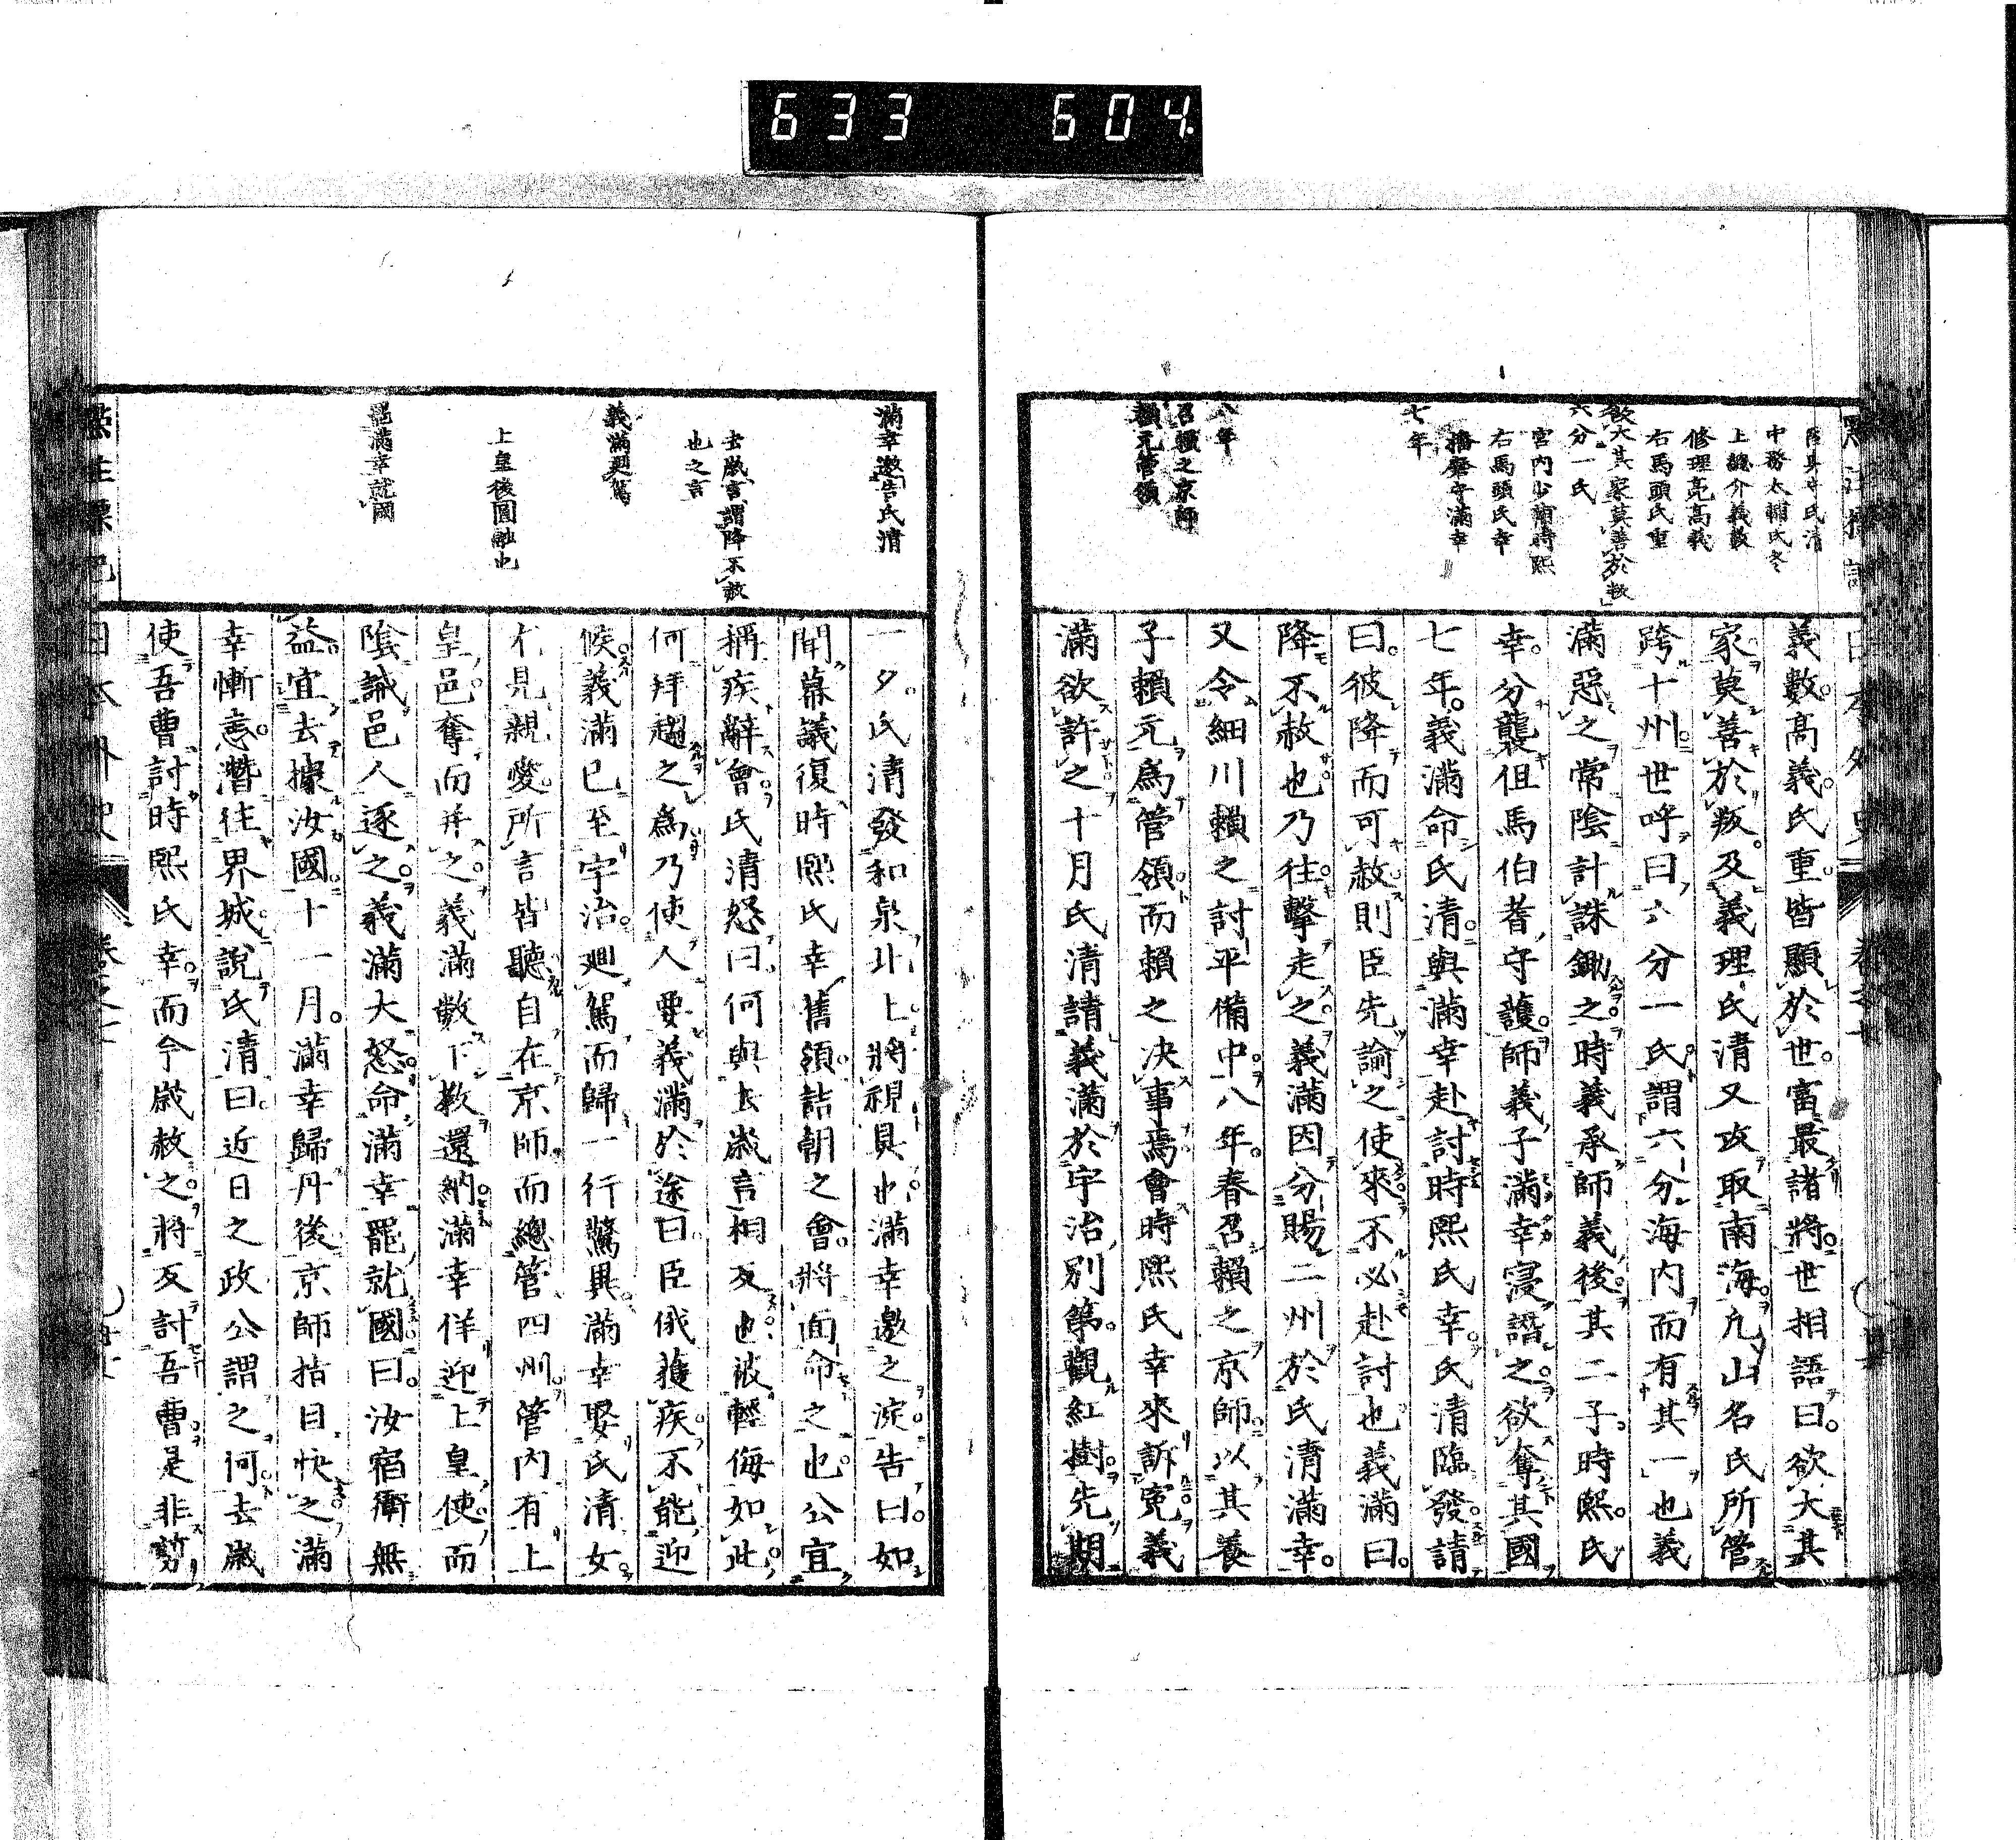 633 604
陸奥守氏清
中務大輔氏冬
上總介義數
修理亮高義
右馬頭氏重
欲大其家莫善於叛
六分一氏
宮内少輔時熙
右馬頭氏幸
播磨守滿幸
七年
八年
召賴之京師
賴元管領
義數高義氏重皆顯於世富最諸將世相語曰欲大其
家莫善於叛及義理氏清又攻取南海凡山名氏所管
跨十州世呼曰六分一氏謂六分海内而有其一也義
滿惡之常陰計誅鋤之時義承師義後其二子時熙氏
幸分襲伹馬伯耆守護師義子滿幸寖譖之欲奪其國
七年義滿命氏清與滿幸赴討時熙氏幸氏清臨發請
曰彼降而可赦則臣先諭之使來不必赴討也義滿曰
降不赦也乃往擊走之義滿因分賜二州於氏清滿幸
又令細川賴之討平備中八年春召賴之京師以其養
子賴元爲管領而賴之決事焉會時熙氏幸來訴寃義
滿欲許之十月氏清請義滿於宇治別第觀紅樹先期
滿幸邀告氏清
去歲言謂降不赦
也之言
義滿廻駕
上皇後圓融也
罷滿幸就國
一夕氏清發和泉北上將視具也滿幸邀之淀告曰如
聞幕議復時熙氏幸舊領詰朝之會將面命之也公宜
稱疾辭會氏清怒曰何與去歲言相反也被輕侮如此
何拜趨之爲乃使人要義滿於途曰臣俄獲疾不能迎
候義滿已至宇治廻駕而歸一行驚異滿幸娶氏清女
尤見親愛所言皆聽自在京師而總管四州管内有上
皇邑奪而并之義滿數下教還納滿幸佯迎上皇使而
陰誡邑人逐之義滿大怒命滿幸罷就國曰汝宿衞無
益宜去據汝國十一月滿幸歸丹後京師指目快之滿
幸慚恚潛往界城說氏清曰近日之政公謂之何去歲
使吾曹討時熙氏幸而今歲赦之將反討吾曹是非剪
日本外史